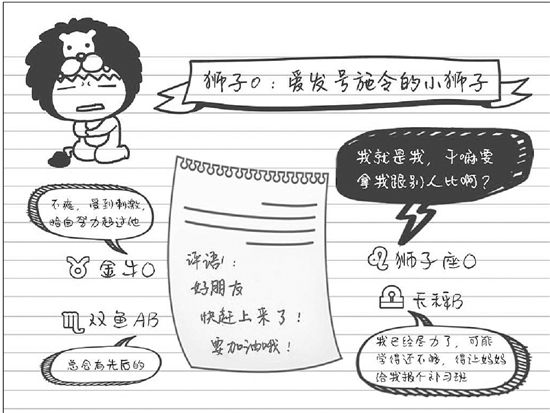 狮子O：爱发号施令的小狮子
我就是我，干嘛要
拿我跟别人比啊？
不难，受到刺激，
暗自努力超过他
金牛O
双鱼AB
总会有先后的
评语：
好朋友
快赶上来了！
要加油哦！
狮子座O
天秤B
我已经尽力了，可能
觉得还不够，得让妈妈
给我报个补习班